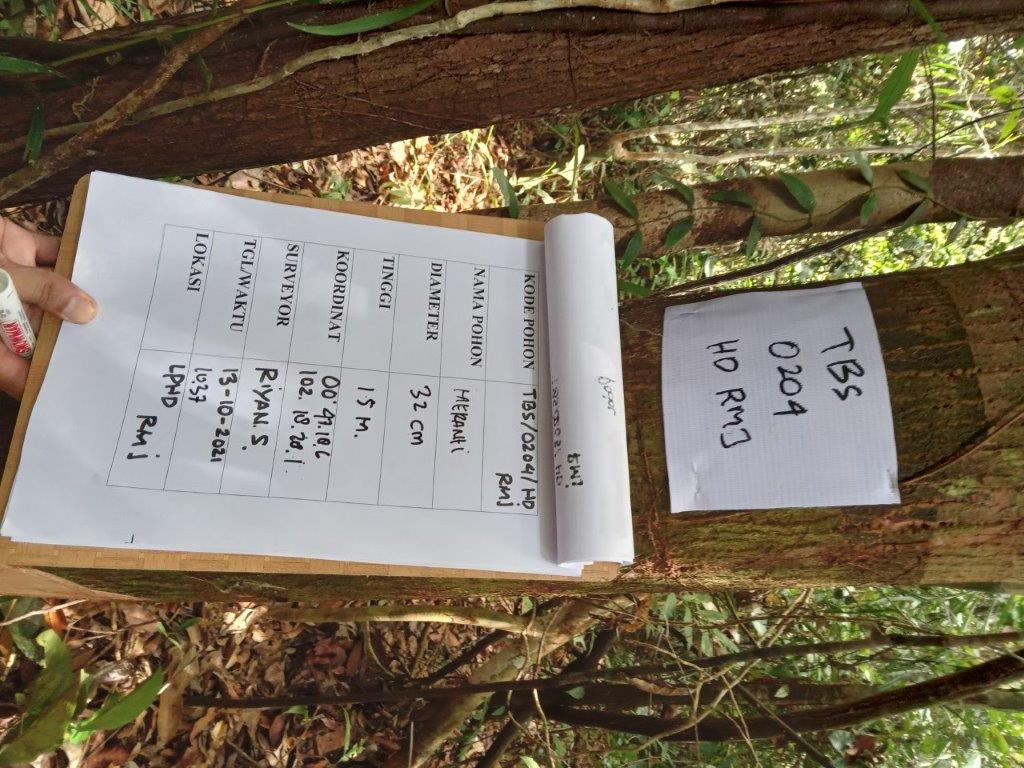 TBS
0204
HD RMJ
KODE POHON TBS/0204/HD
RMJ
NAMA POHON MERANTI
DIAMETER 32 CM
TINGGI 15 M.
KOORDINAT 00°47.18.6
102. 18. 20. 1.
SURVEYOR RiYAN. S.
TGL/WAKTU 13-10-2021
10.37
LOKASI LPHD
RMJ
SNOWMAN